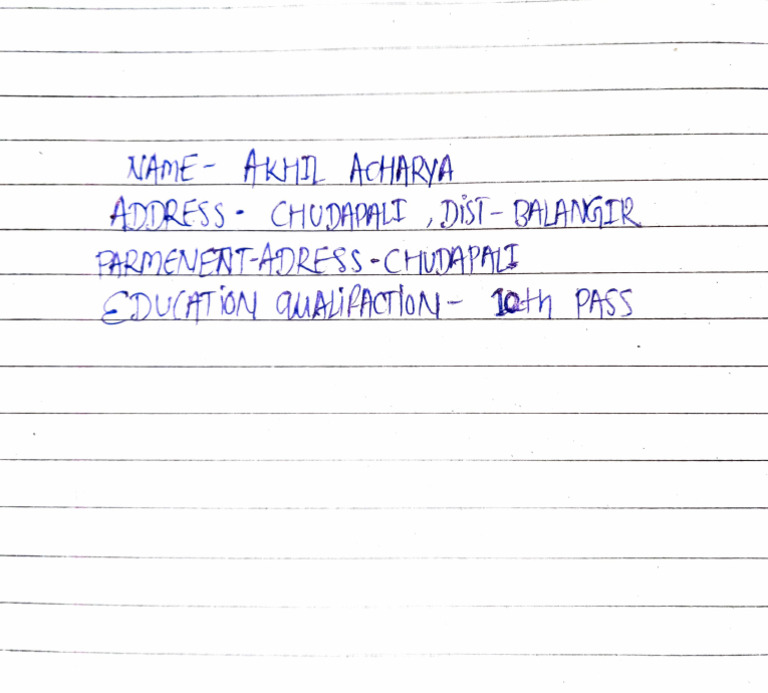 NAME- AKHIL ACHARYA
ADDRESS- CHUDAPALI , DiST- BALANGIR
PARMENENT-ADRESS-CHUDAPALI
EDUCATiON QUALiFACTiON- 10th PASS